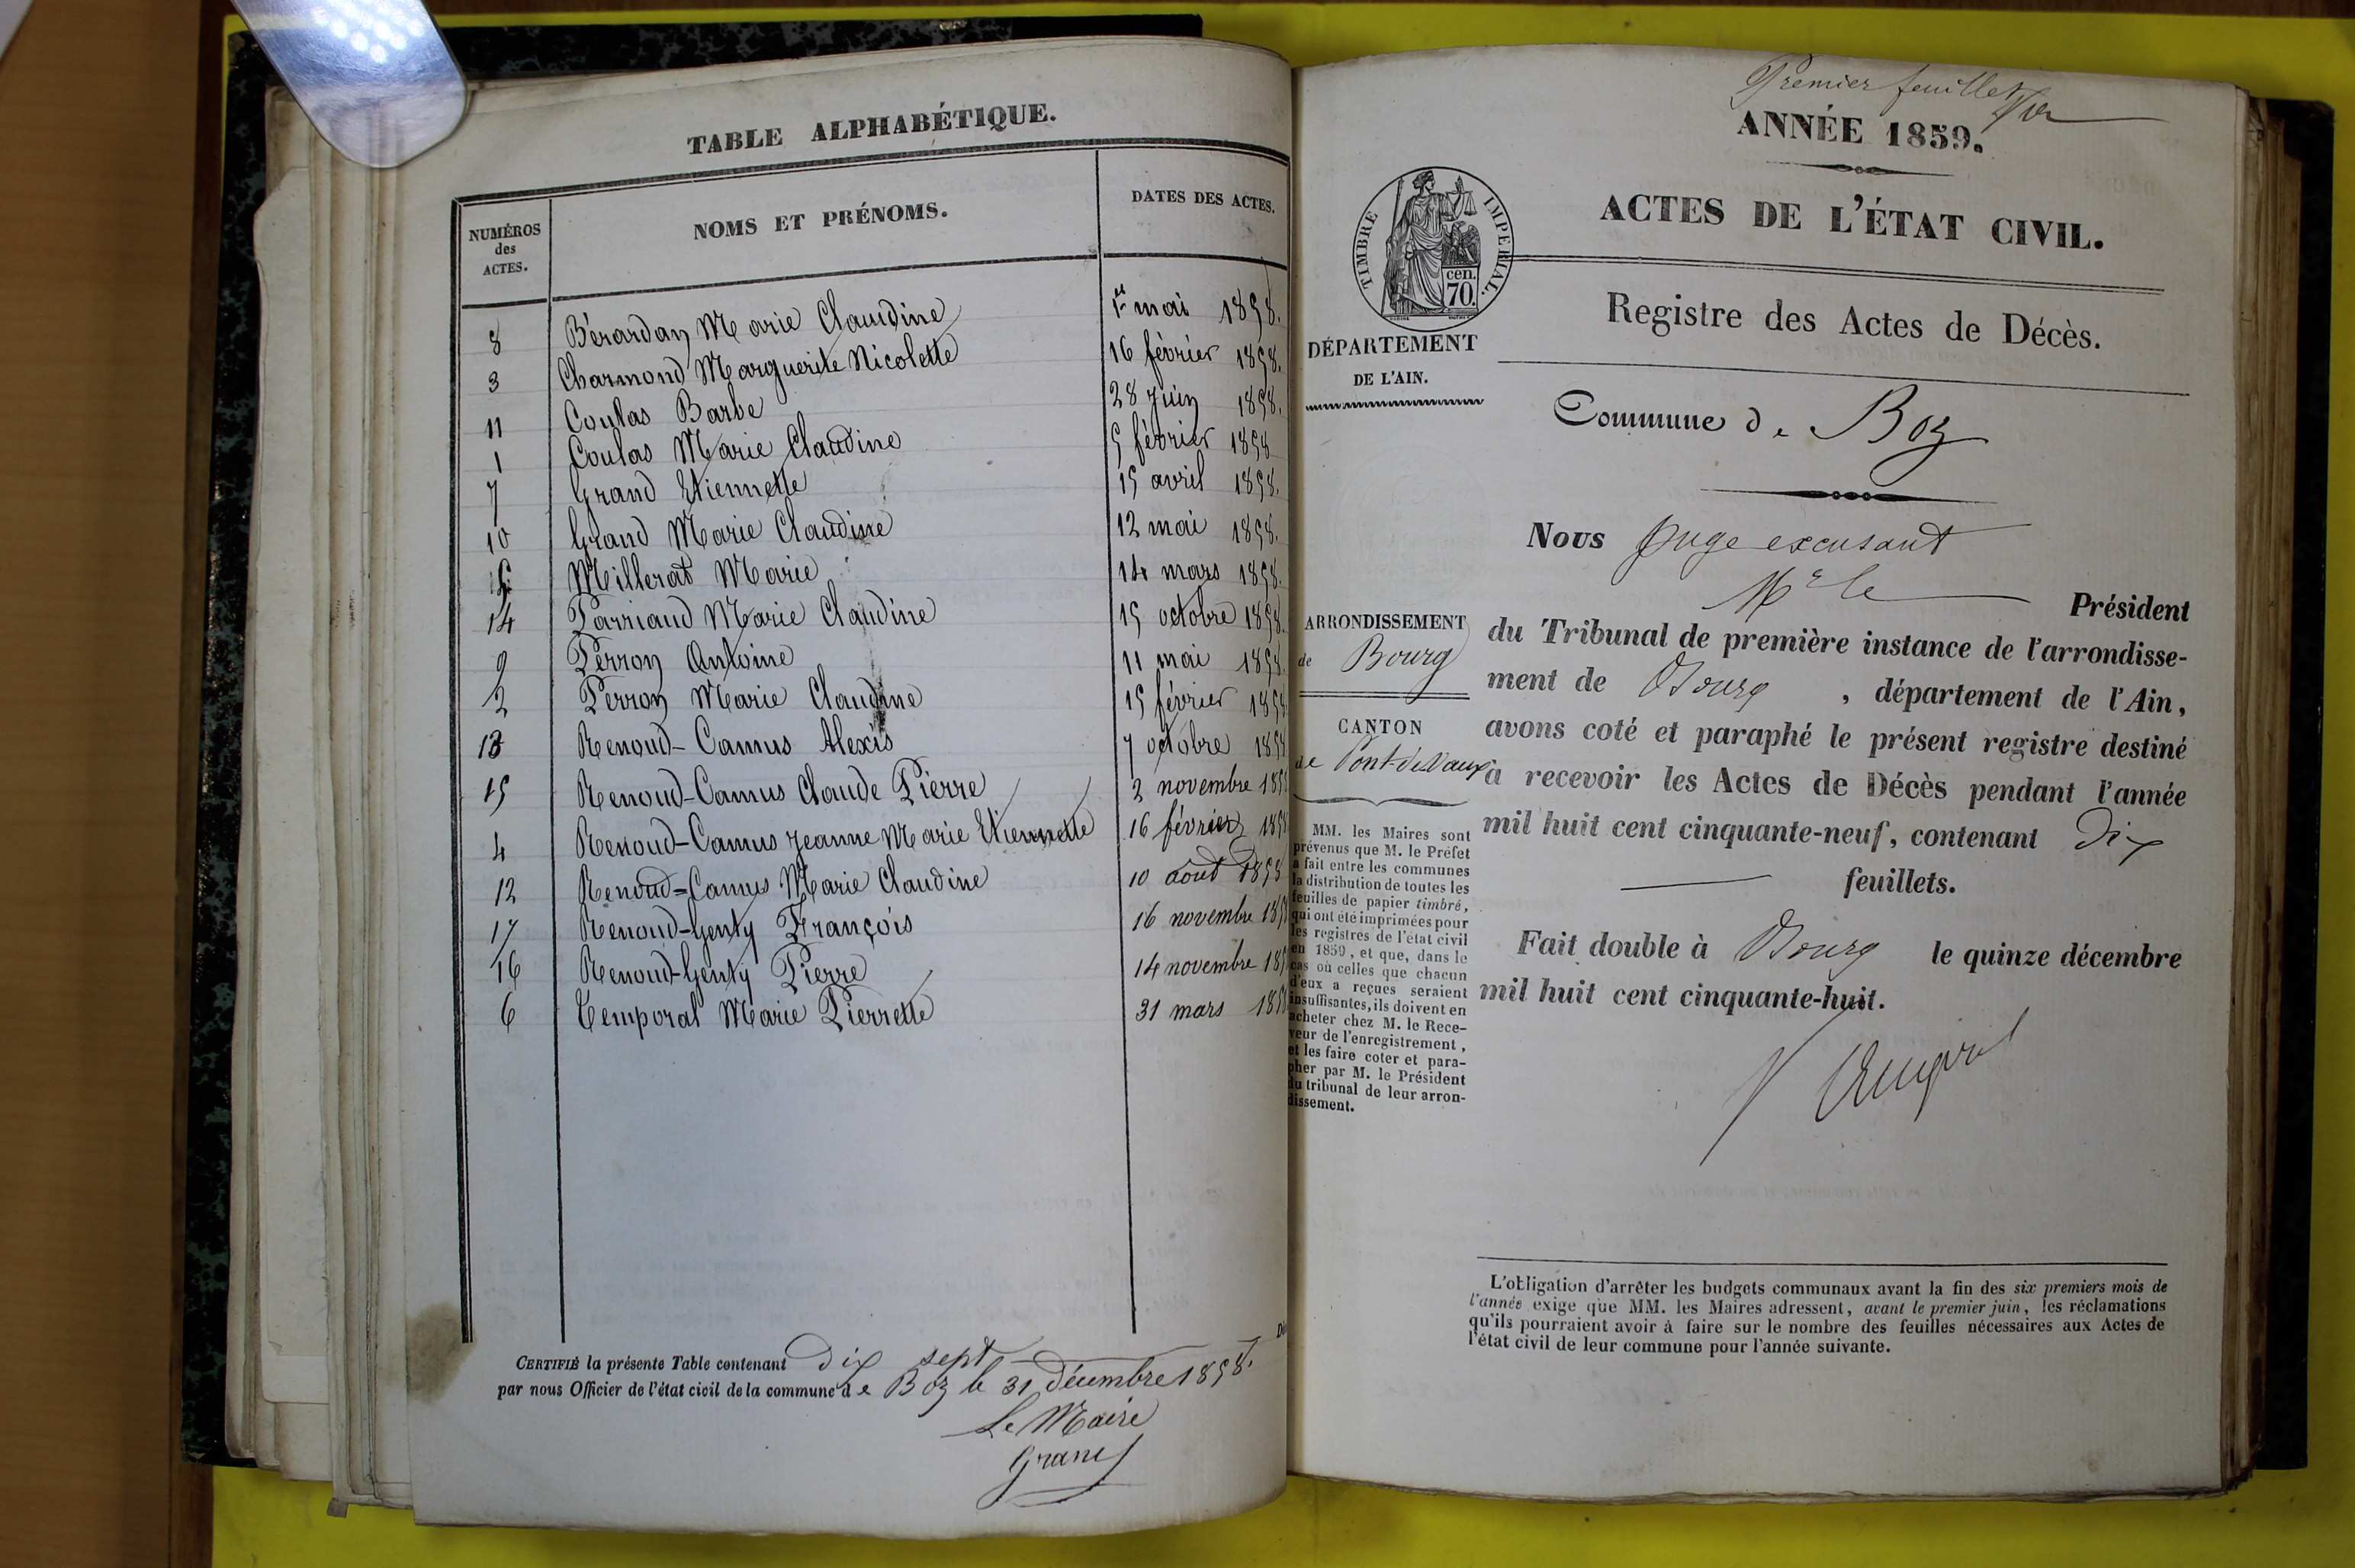 TABLE ALPHABÉTIQUE.
NUMÉROS des ACTES. NOMS ET PRÉNOMS. DATES DES ACTES.
8 Bérardan Marie Claudine 1er mai 1858.
3 Charmond Marguerite Nicolette 16 février 1858.
11 Coulas Barbe 28 juin 1858.
1 Coulas Marie Claudine 5 février 1858
7 Grand Etiennette 15 avril 1858.
10 Grand Marie Claudine 12 mai 1858.
5 Millerat Marie 14 mars 1858.
14 Parriaud Marie Claudine 15 octobre 1858.
9 Perron Antoine 11 mai 1858.
2 Perron Marie Claudine 15 février 1858
13 Renoud-Camus Alexis 7 octobre 1858
15 Renoud-Camus Claude Pierre 2 novembre 185
4 Renoud-Camus Jeanne Marie Etiennette 16 février 185
12 Renoud-Camus Marie Claudine 10 août 1858
17 Renoud-Genty François 16 novembre 185
16 Renoud-Genty Pierre 14 novembre 185
6 Temporal Marie Pierrette 31 mars 185
CERTIFIÉ la présente Table contenant dix sept
par nous Officier de l'état civil de la commune de Boz le 31 décembre 1858.
Le Maire
Grand
Premier feuillet
ANNÉE 1859.
ACTES DE L'ÉTAT CIVIL.
TIMBRE IMPERIAL.
cen.
70.
Registre des Actes de Décès.
DÉPARTEMENT
DE L'AIN.
Commune de Boz
Nous Juge excusant
Mr le Président
du Tribunal de première instance de l'arrondisse-
ment de Bourg, département de l'Ain,
avons coté et paraphé le présent registre destiné
à recevoir les Actes de Décès pendant l'année
mil huit cent cinquante-neuf, contenant dix
feuillets.
Fait double à Bourg le quinze décembre
mil huit cent cinquante-huit.
ARRONDISSEMENT
de Bourg
CANTON
de Pont-de-Vaux
MM. les Maires sont
prévenus que M. le Préfet
a fait entre les communes
la distribution de toutes les
feuilles de papier timbré,
qui ont été imprimées pour
les registres de l'état civil
en 1859, et que, dans le
cas où celles que chacun
d'eux a reçues seraient
insuffisantes, ils doivent en
acheter chez M. le Rece-
veur de l'enregistrement,
et les faire coter et para-
pher par M. le Président
du tribunal de leur arron-
dissement.
L'obligation d'arrêter les budgets communaux avant la fin des six premiers mois de
l'année exige que MM. les Maires adressent, avant le premier juin, les réclamations
qu'ils pourraient avoir à faire sur le nombre des feuilles nécessaires aux Actes de
l'état civil de leur commune pour l'année suivante.